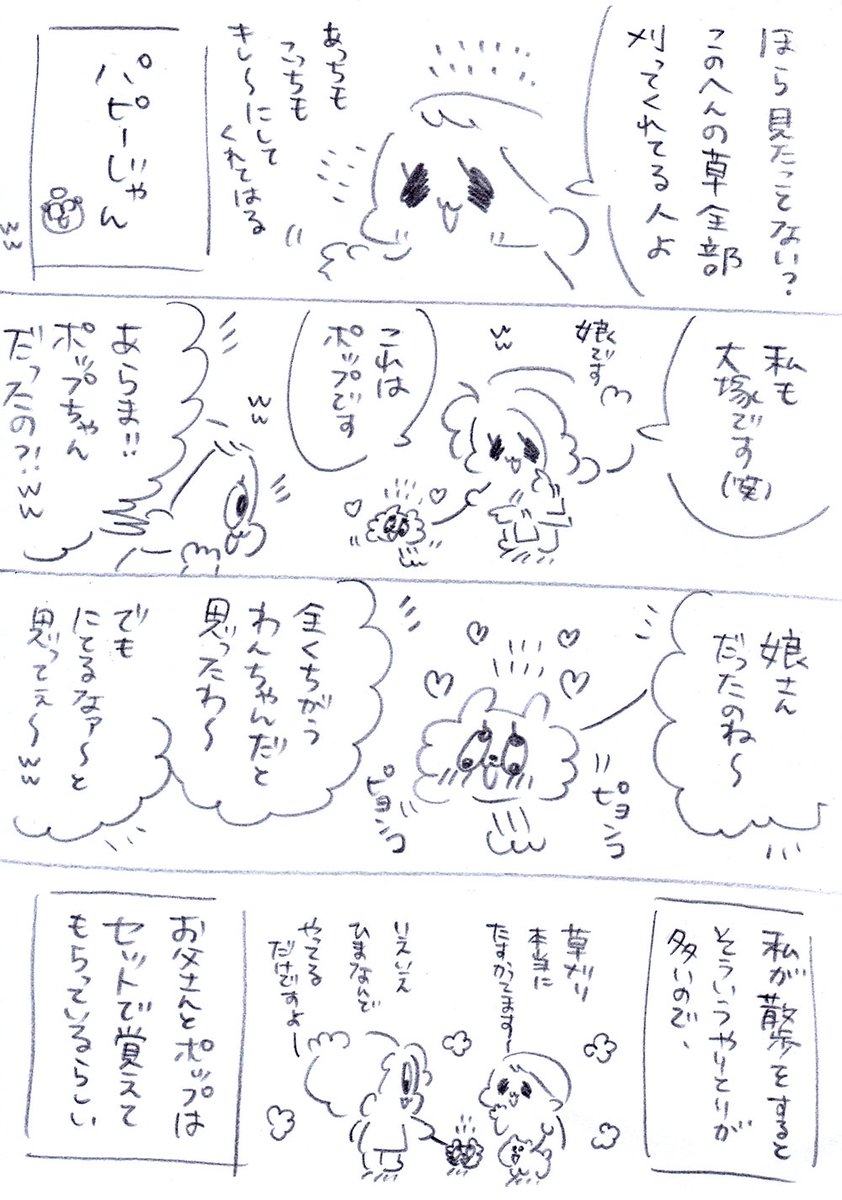 ほら見たことない?
このへんの草全部
刈ってくれてる人よ
あっちも
こっちも
きし〜にして
くれてはる
パピーじゃん
ʬʬ
私も
大塚です(笑)
娘です
ʬʬ
これは
ポップです
ʬʬ
あらま!!
ポップちゃん
だったの?!ʬʬ
娘さん
だったのね〜
ピョンコ
ピョンコ
全くちがう
わんちゃんだと
思ったわ〜
でも
にてるなァ〜と
思ってぇ〜ʬʬ
私が散歩をすると
そういうやりとりが
多いので、
草刈り
本当に
たすかってます〜
いえいえ
ひまなんで
やってる
だけですよー
お父さんとポップは
セットで覚えて
もらっているらしい